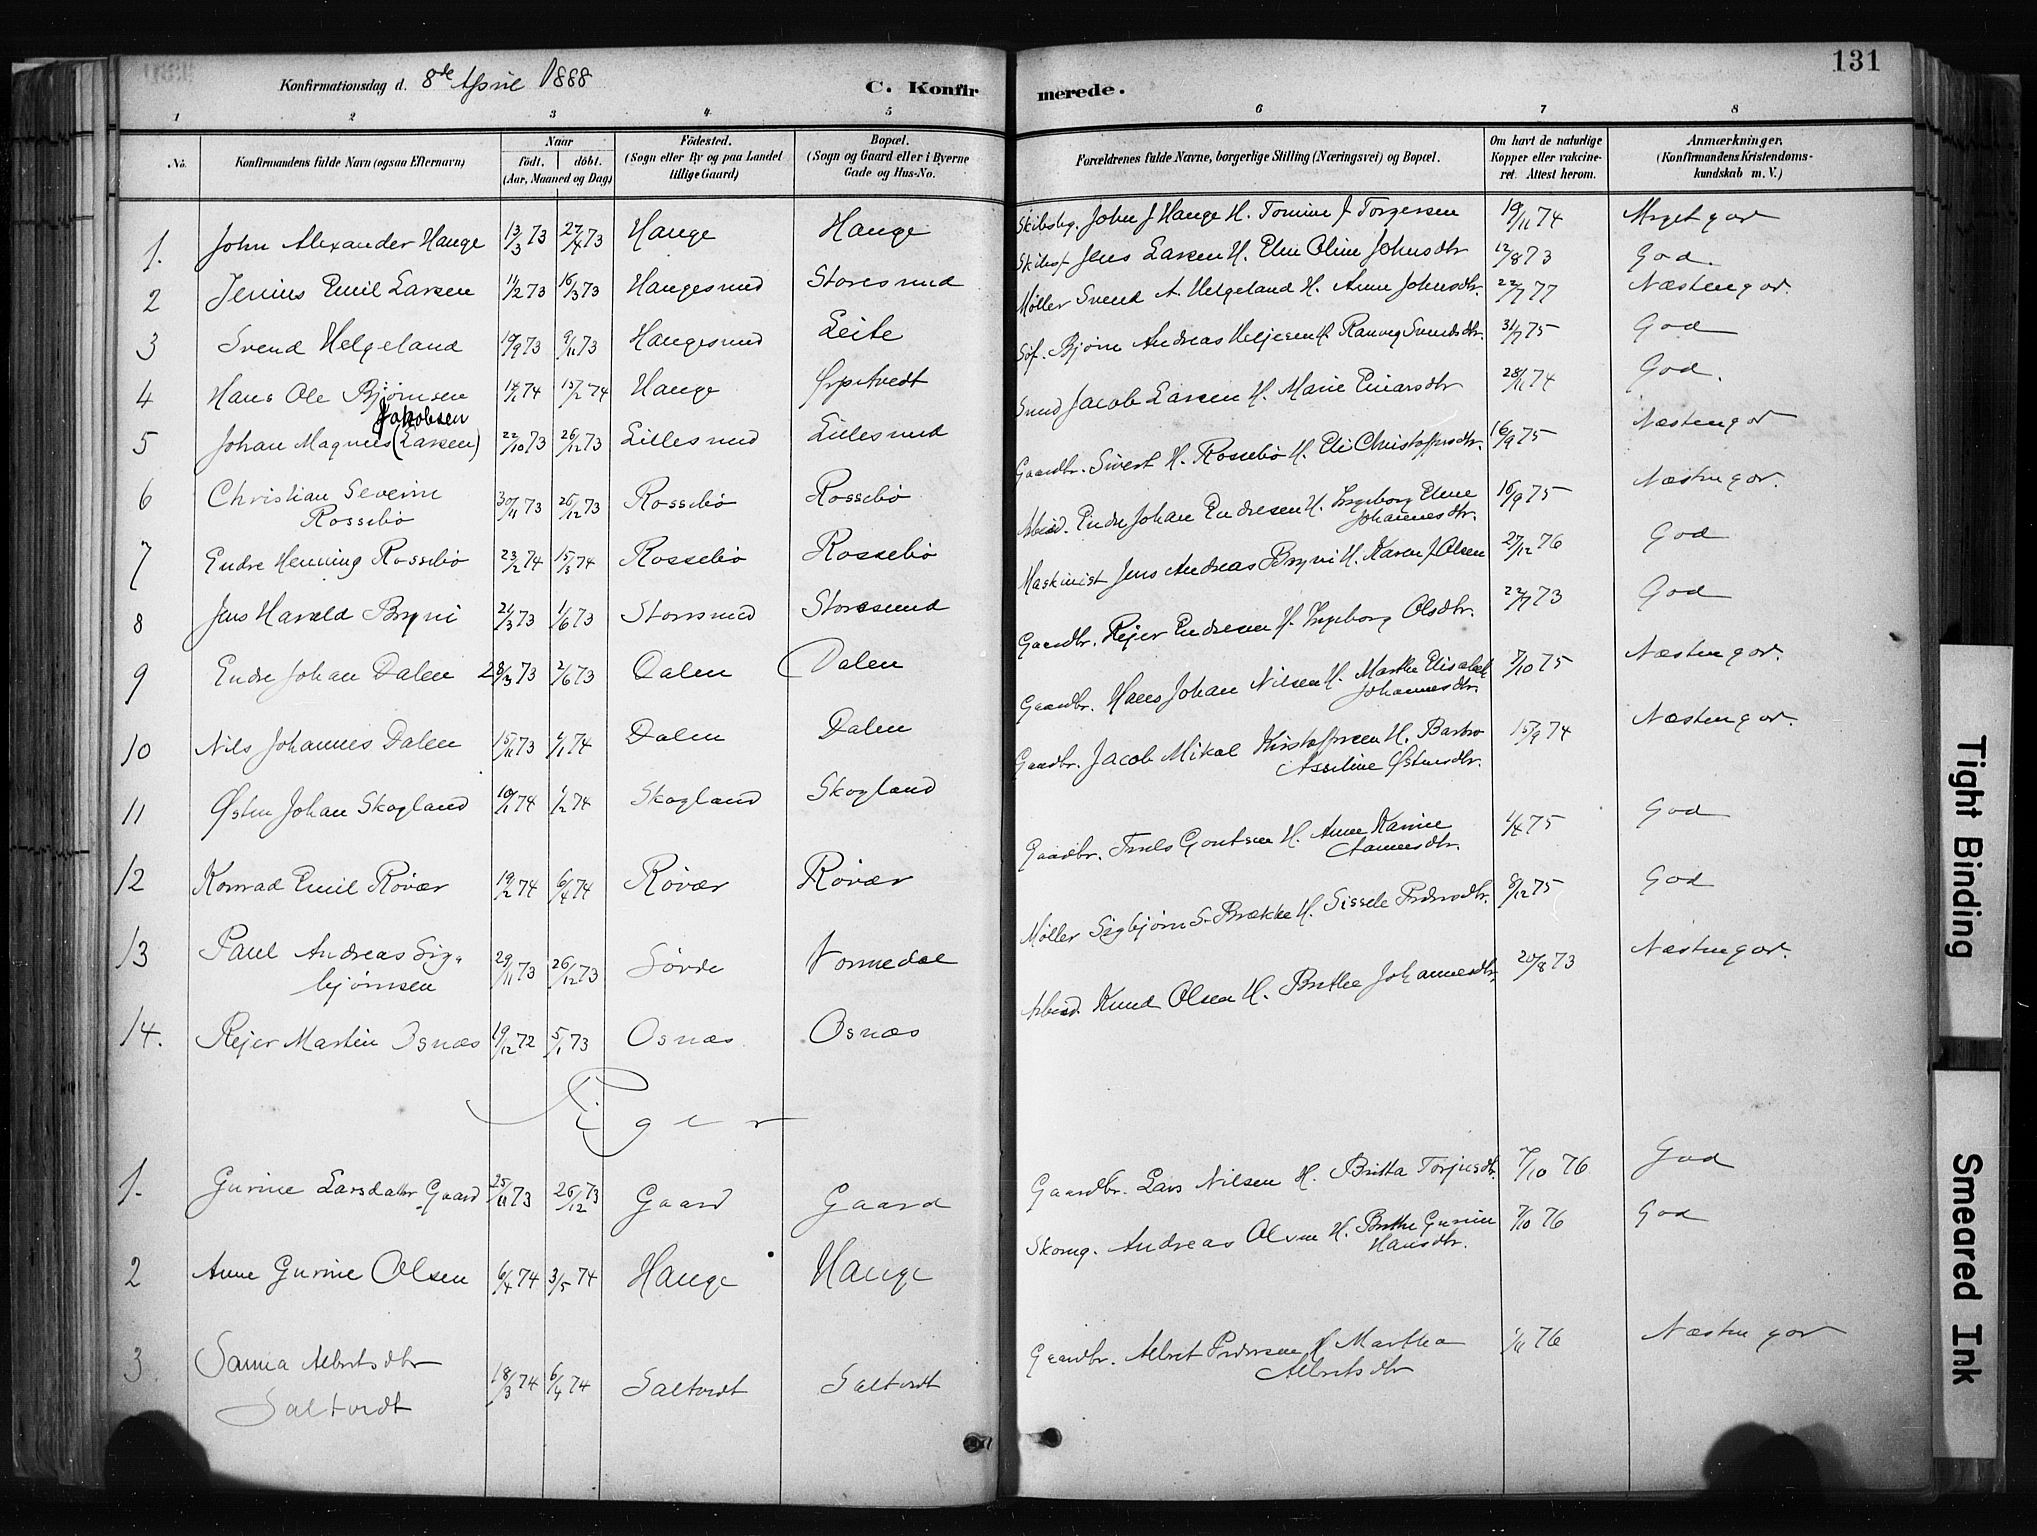 131
Konfirmationsdag d. 8de April 1888
C. Konfirmerede.
1 2 3 4 5 6 7 8
No. Konfirmandens fulde Navn (ogsaa Efternavn) Naar födt. döbt. (Aar, Maaned og Dag) Födested. (Sogn eller By og paa Landet tillige Gaard) Bopæl. (Sogn og Gaard eller i Byerne Gade og Hus-No. Forældrenes fulde Navne, borgerlige Stilling (Næringsvei) og Bopæl. Om havt de naturlige Kopper eller vakcineret. Attest herom. Anmærkninger. (Konfirmandens Kristendomskundskab m. V.)
1. John Alexander Hauge 13/3 73 27/4 73 Hauge Hauge Skibsbyg. John J Hauge H. Tomine J Torgersen 19/11 74 Meget god
2 Jenius Emil Larsen 11/2 73 16/3 73 Haugesund Storesund Jens Larsen H. Elen Oline Johnsdtr 12/8 73 God.
3 Svend Helgeland 19/9 73 9/11 73 Haugesund Leite Møller Svend A. Helgeland H. Anne Johnsdtr. 22/7 77 Næsten god.
4 Hans Ole Bjørnsen 14/1 74 15/2 74 Hauge Ørpetvedt Söf. Bjørn Andreas Heljesen H. Ranveg Svendsdtr. 31/7 75 God
5 Johan Magnus (Larsen) Jakobsen 22/10 73 26/12 73 Lillesund Lillesund Jacob Larsen H. Marie Einarsdtr 28/11 74 God.
6 Christian Severin Rossebø 30/11 73 26/12 73 Rossebø Rossebø Gaardbr. Sivert H. Rossebø H. Eli Christoffersdtr. 16/9 75 Næsten god
7 Endre Henning Rossebø 23/2 74 15/3 74 Rossebø Rossebø Arbeid. Endre Johan Endresen H. Ingeborg Eline Johannesdtr. 16/9 75 Næsten god.
8 Jens Harald Bryni 21/3 73 1/6 73 Storesund Storesund Maskinist Jens Andreas Bryni H. Karen J. Olsen 27/12 76 God
9 Endre Johan Dalen 28/3 73 2/6 73 Dalen Dalen Gaardbr. Rejer Endresen H. Ingeborg Olsdtr. 22/7 73 God
10 Nils Johannes Dalen 15/11 73 1/1 74 Dalen Dalen Gaardbr. Hans Johan Nilsen H. Marthe Elisabeth Johannesdtr. 7/10 75 Næsten god.
11 Østen Johan Skogland 10/1 74 1/2 74 Skogland Skogland Gaardbr. Jacob Mikal Kristoffersen H. Barbro Asseline Østensdtr. 15/9 74 Næsten god.
12 Konrad Emil Røvær 19/2 74 6/4 74 Røvær Røvær Gaardbr. Truls Goutsen H. Anne Karine Aamundsdtr. 1/4 75 God
13 Paul Andreas Sigbjørnsen 29/11 73 26/12 73 Sørde Vormedal Møller Sigbjørn S. Brække H. Sissele Pedersdtr. 8/12 75 God
14. Rejer Martin Osnæs 19/12 72 5/1 73 Osnæs Osnæs Arbeid Knud Olsen H. Brithe Johannesdtr. 20/8 73 Næsten god.
Piger
1. Gurine Larsdatter Gaard 25/11 73 26/12 73 Gaard Gaard Gaardbr. Lars Nilsen H. Britta Torjusdtr. 7/10 76 God
2 Anne Gurine Olsen 6/4 74 3/5 74 Hauge Hauge Skomg. Andreas Olsen H. Brithe Gurine Hansdtr. 7/10 76 God
3. Sanna Albertsdtr Saltvedt 18/3 74 6/4 74 Saltvedt Saltvedt Gaardbr. Albert Pedersen H Martha Albertsdtr 1/11 76 Næsten god
Tight Binding
Smeared Ink